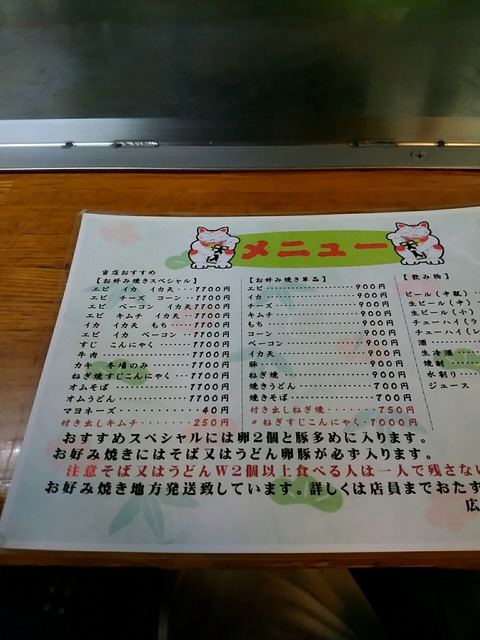 メニュー
当店おすすめ
【お好み焼きスペシャル】
エビ イカ イカ天‥1100円
エビ チーズ コーン‥1100円
エビ ベーコン イカ天1100円
エビ キムチ イカ天‥1100円
イカ イカ天 もち‥‥1100円
エビ イカ ベーコン‥1100円
すじ こんにゃく‥‥‥1100円
牛肉‥‥‥‥‥‥‥‥1100円
カキ 冬場のみ‥‥‥‥1100円
ねぎ焼すじこんにゃく‥1100円
オムそば‥‥‥‥‥‥1100円
オムうどん‥‥‥‥‥1100円
マヨネーズ‥‥‥‥‥‥40円
付き出しキムチ‥‥‥‥250円
【お好み焼き単品】
エビ‥‥‥‥‥‥‥‥900円
イカ‥‥‥‥‥‥‥‥900円
チーズ‥‥‥‥‥‥‥900円
キムチ‥‥‥‥‥‥‥900円
もち‥‥‥‥‥‥‥‥900円
コーン‥‥‥‥‥‥‥900円
ベーコン‥‥‥‥‥‥900円
イカ天‥‥‥‥‥‥‥900円
豚‥‥‥‥‥‥‥‥‥900円
ねぎ焼‥‥‥‥‥‥‥900円
焼きうどん‥‥‥‥‥700円
焼きそば‥‥‥‥‥‥700円
付き出しねぎ焼‥‥‥750円
〃ねぎすじこんにゃく‥1000円
【飲み物】
ビール(中瓶)
生ビール(中)
生ビール(小)
チューハイ(ラ
チューハイ(レ
酒
生冷酒
焼酎
水割り
ジュース
おすすめスペシャルには卵2個と豚多めに入ります。
お好み焼きにはそば又はうどん卵豚が必ず入ります。
注意そば又はうどんW2個以上食べる人は一人で残さない
お好み焼き地方発送致しています。詳しくは店員までおたず
広